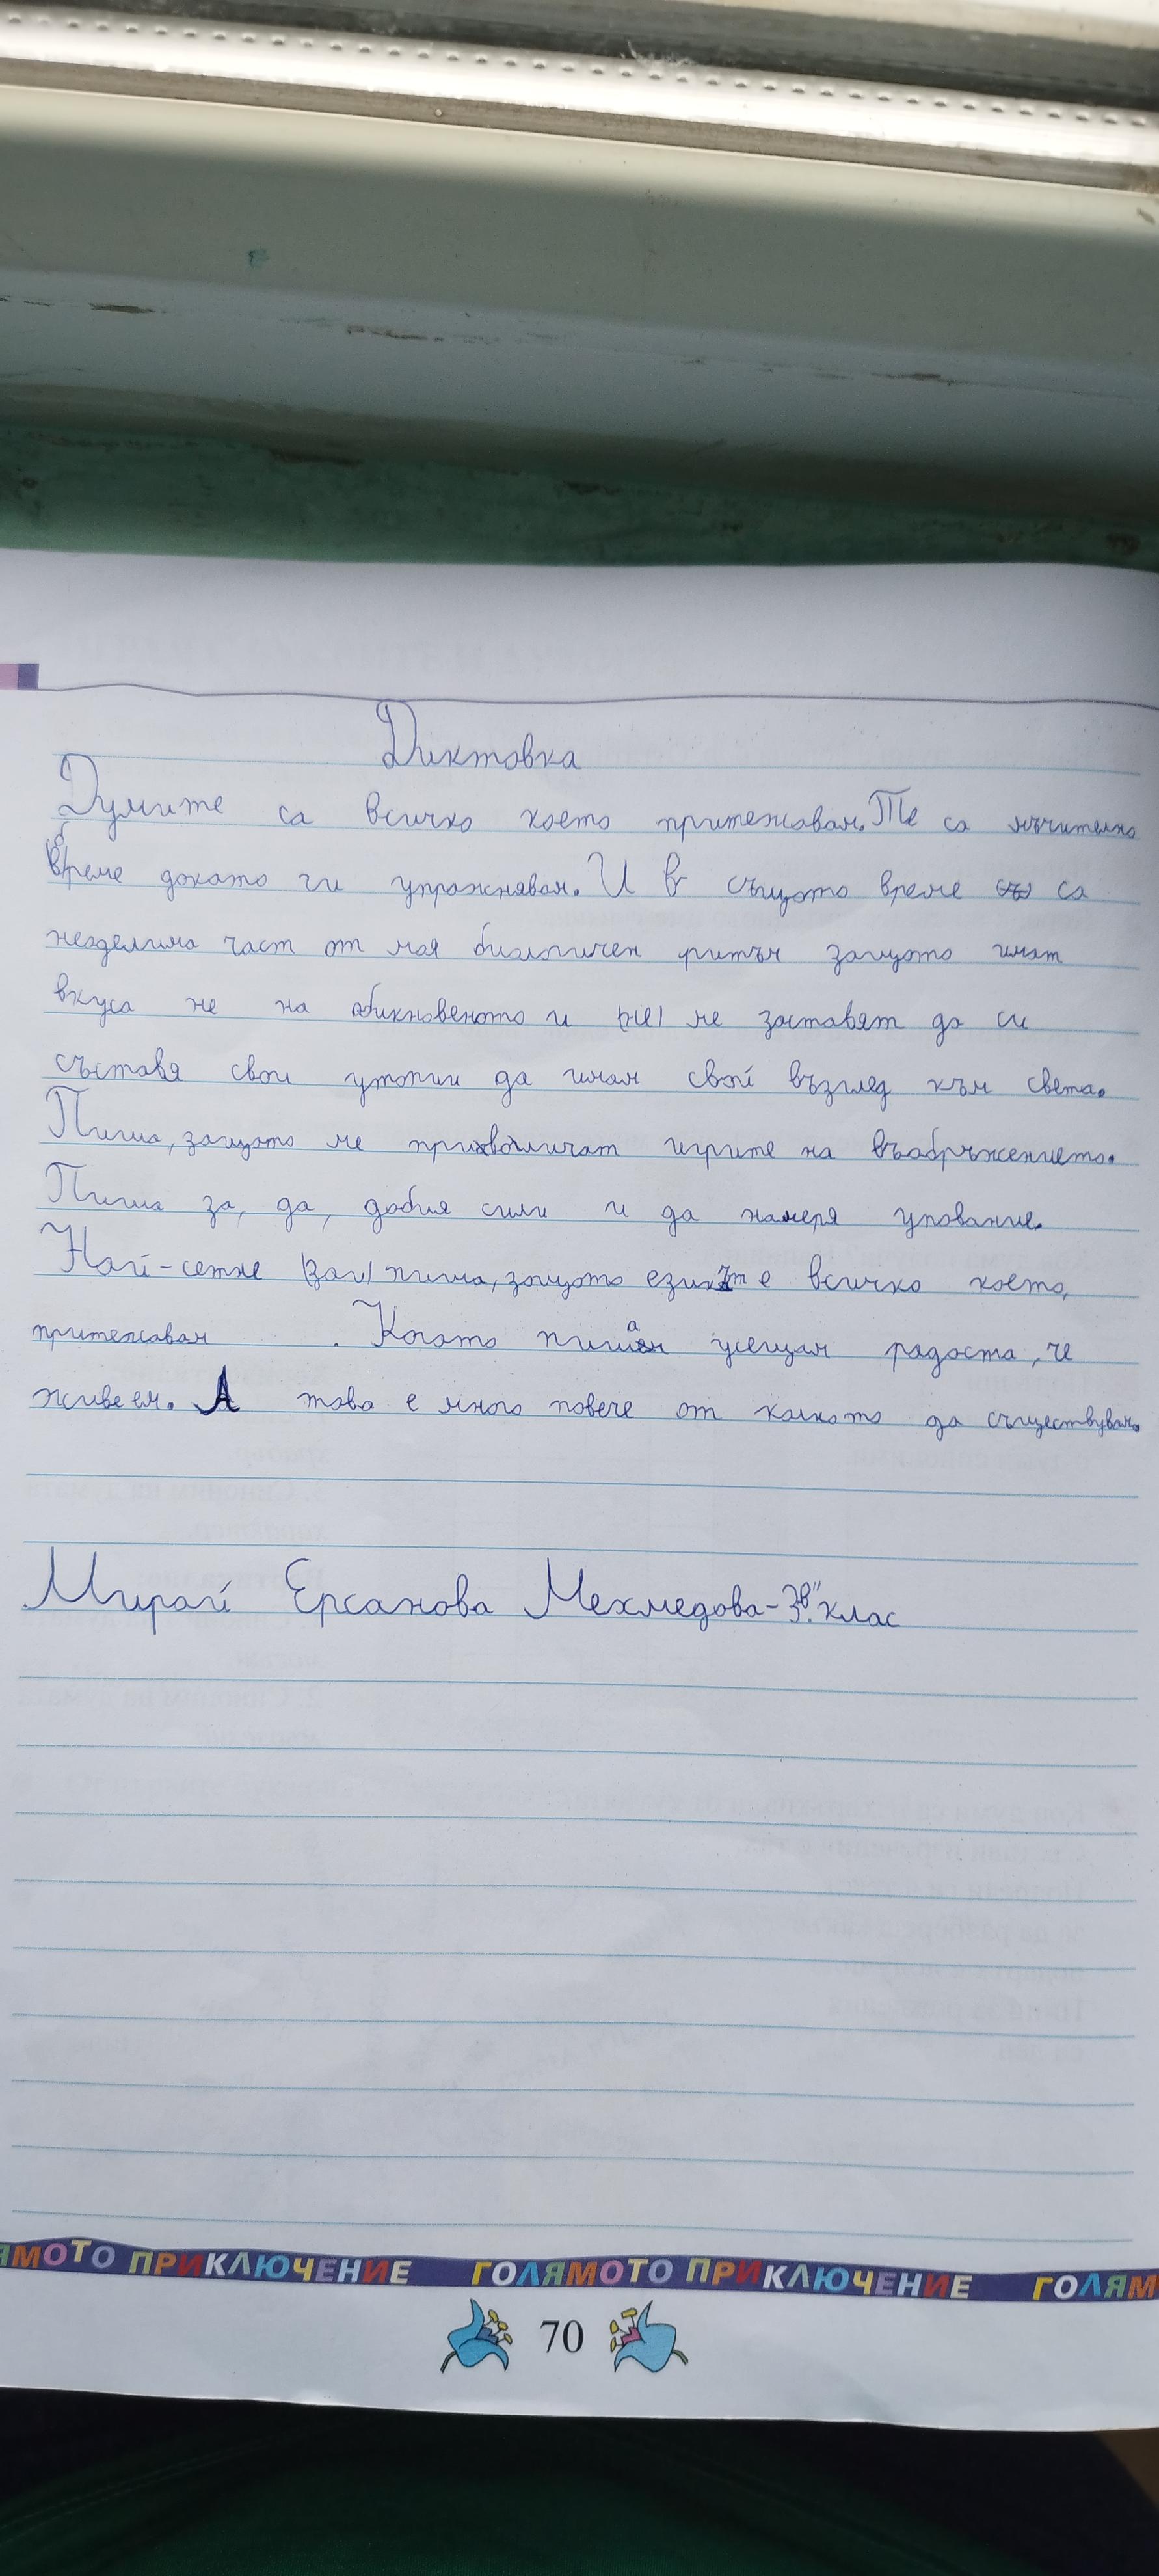 Диктовка
Думите са всичко което притежавам. Те са мъчително
бреме докато ги упражнявам. И в същото време са
неаделима част от моя биологичен ритъм защото имат
вкуса не на обикновеното и ме заставят да си
съставя свои утопии да имам свой възглед към света.
Пиша, защото ме прихволичат игрите на въабръжението.
Пиша за, да, добия сили и да намеря упование.
Най-сетне пиша, защото езикът е всичко което,
притежавам . Когато пиша усещам радоста, че
живеем. А това е много повече от колкото да съществувам.
Мирай Ерсанова Мехмедова - 3"в" клас
ЯМОТО ПРИКЛЮЧЕНИЕ ГОЛЯМОТО ПРИКЛЮЧЕНИЕ ГОЛЯМ
70